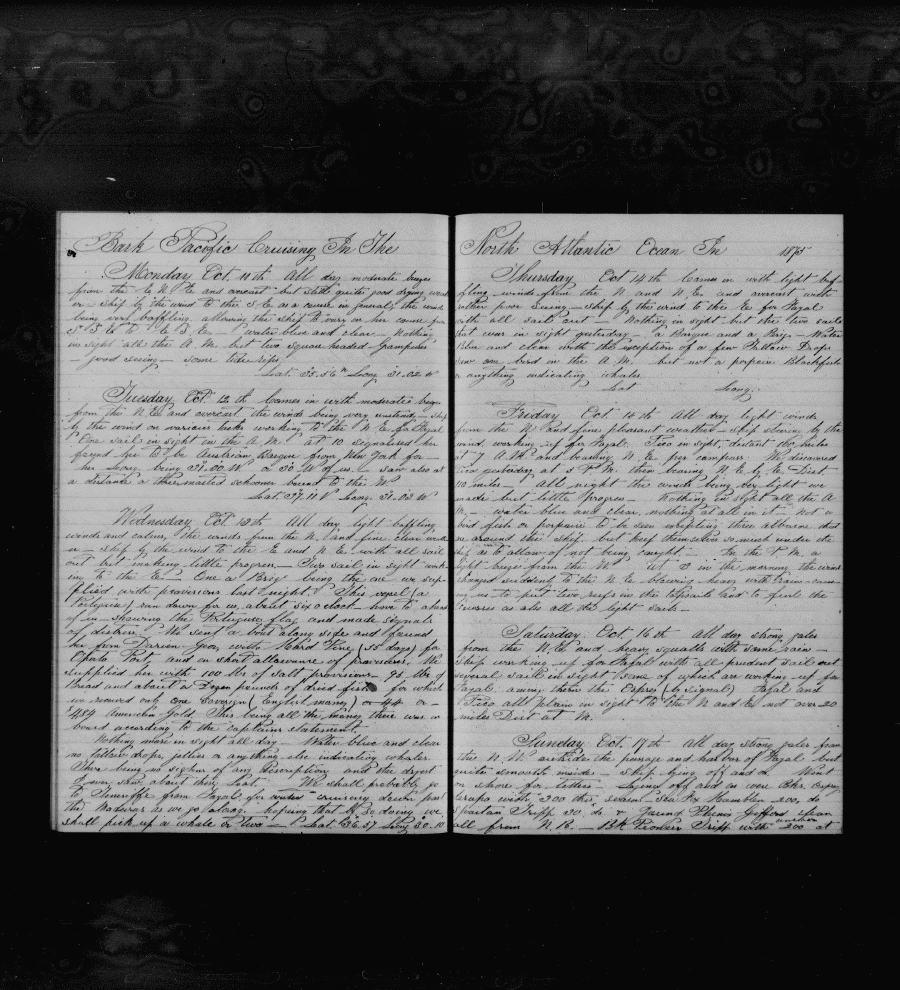 Bark Pacific Cruising In The
Monday Oct 11th All day moderate breeze
from the E N E and overcast but still quite good drying weat
er - Ship by the wind to the S E as a cruise in general, the wind
being very baffling, allowing the Ship to vary on her course from
S to E S E - water blue and clear - Nothing
in sight all the A.M. but two square headed Grampuses
- good seeing - some tide rips
Lat. 35.56 N Long 31.02 W
Tuesday Oct. 12th Comes in with moderate breeze
from the N E and overcast the winds being very unsteady - ship
by the wind on various tacks working to the N E for Fayal
One sail in sight in the A.M. at 10 signalized her
found her to be Austrian Barque from New York for -
her Long being 31.00 W or 30 W of us - saw also at
a distance a three masted schooner bound to the W
Lat. 37.11 N Long. 31.02 W
Wednesday Oct. 13th All day light baffling
winds and calms, the winds from the N. and fine clear weath
er - ship by the wind to the E and N E with all sail
out but making little progress - Four sail in sight work
ing to the E - One a Brig being the one we sup
plied with provisions last night. This vessel (a
Portuguese) ran down for us, about six o clock - hove to ahead
of us - showing the Portuguese flag and made signals
of distress. We sent a boat along side and found
her from Darien Geo, with Hard Pine (55 days) for
Oporto Port, and on short allowance of provisions. We
supplied her with 100 lbs of salt provisions - 95 lbs of
Bread and about a Dozen pounds of dried fish for which
we received only one sovereign (English money) or
4.84 American Gold. This being all the money there was on
board according to the captains statement.
Nothing more in sight all day - Water blue and clear
no tallow drops, jellies or anything else indicating whales
There being no signs of any description and the dryest
I ever saw about this Lat. We shall probably go
to Teneriffe from Fayal for cruising down past
the Madeiras as we go along, hoping that by so doing we
shall pick up a whale or two - Lat. 36.57 Long 30.10
North Atlantic Ocean In 1875
Thursday Oct 14th Comes in with light baf
fling winds from the N and N E. and overcast with
rather poor seeing - ship by the wind to the E for Fayal
with all sail out - Nothing in sight but the two sails
that was in sight yesterday - a Barque and a Brig - Water
blue and clear with the exception of a few Tallow Drops
saw one bird in the A.M. but not a porpoise Blackfish
or anything indicating whales
Lat Long.
Friday Oct 14th All day light winds
from the N and fine pleasant weather - ship steering by the
wind, working up for Fayal. Pico in sight, distant 100 miles
at 7 A.M. and bearing N E per compass. We discovered
Pico yesterday at 5 P.M. then bearing N E by E Dist
110 miles - All night the winds being very light we
made but little progress - Nothing in sight all the A
M. - water blue and clear, nothing at all in it - not a
bird fish or porpoise to be seen excepting three albacore that
are around the ship but keep themselves so much under the
ship as to allow of not being caught - In the P.M. a
light breeze from the N At 3 in the morning the wind
changed suddenly to the N E blowing heavy with rain - caus
ing us to put two reefs in the topsails and to furl the
courses as also all the light sails -
Saturday Oct. 16th All day strong gales
from the N E and heavy squalls with some rain -
Ship working up for Fayal with all prudent sail out
several sails in sight some of which are working up for
Fayal among them the Cyprus (by signal) Fayal and
Pico all plain in sight to the N and E not over 20
miles Dist at M.
Sunday Oct. 17th All day strong gales from
the N W outside the passage and harbor of Fayal but
quite smooth inside - Ship lying off and on. Went
on shore for letters - Laying off and on were Bks
with 300 this season Sea Fox Hamblen 200 do
Spartan Tripp 30 do & Jacund Phinis Gifford clean
all from N.B. - Bk Pioneer Tripp with another 200 at